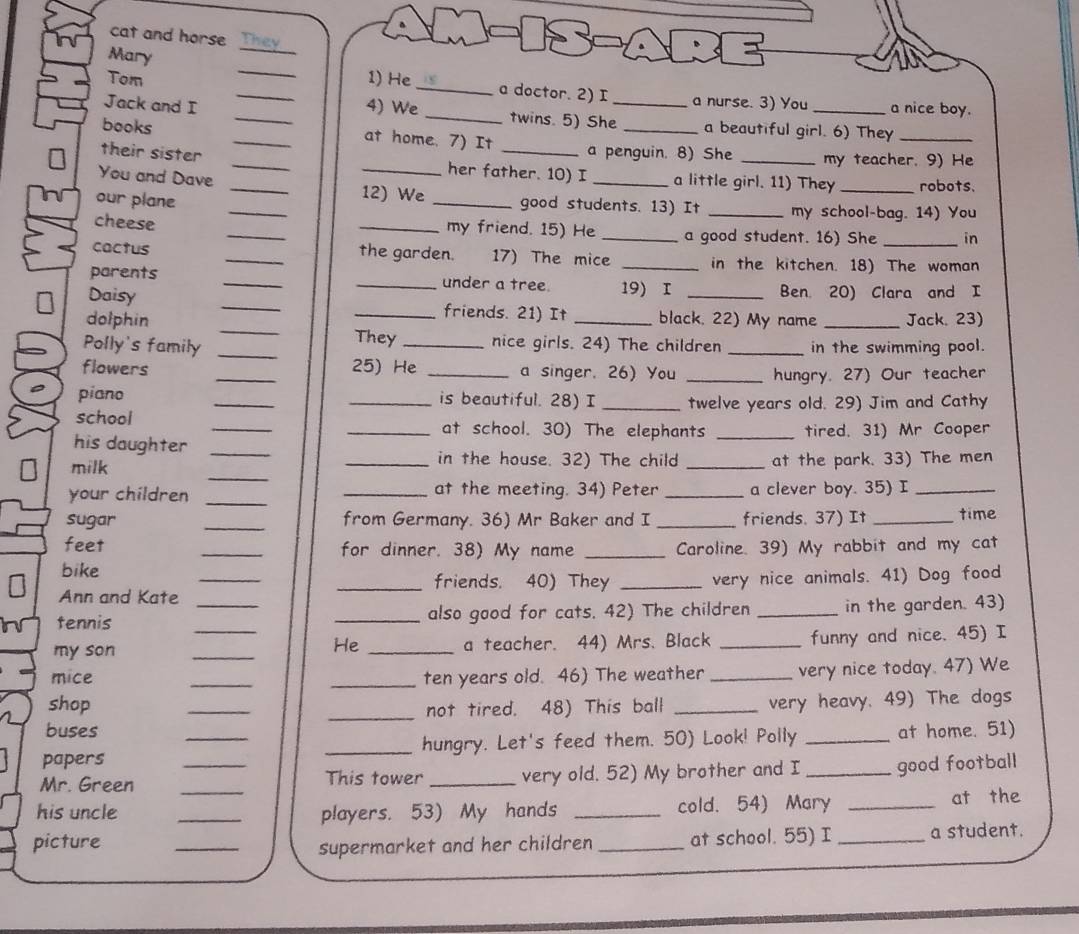 AM-IS-ARE
HE - SHE - IT - YOU - WE - THEY
cat and horse They
Mary ____
Tom ____
Jack and I ____
books ____
their sister ____
You and Dave ____
our plane ____
cheese ____
cactus ____
parents ____
Daisy ____
dolphin ____
Polly's family ____
flowers ____
piano ____
school ____
his daughter ____
milk ____
your children ____
sugar ____
feet ____
bike ____
Ann and Kate ____
tennis ____
my son ____
mice ____
shop ____
buses ____
papers ____
Mr. Green ____
his uncle ____
picture ____
1) He is a doctor. 2) I ____ a nurse. 3) You ____ a nice boy.
4) We ____ twins. 5) She ____ a beautiful girl. 6) They ____
at home. 7) It ____ a penguin. 8) She ____ my teacher. 9) He
____ her father. 10) I ____ a little girl. 11) They ____ robots.
12) We ____ good students. 13) It ____ my school-bag. 14) You
____ my friend. 15) He ____ a good student. 16) She ____ in
the garden. 17) The mice ____ in the kitchen. 18) The woman
____ under a tree. 19) I ____ Ben. 20) Clara and I
____ friends. 21) It ____ black. 22) My name ____ Jack. 23)
They ____ nice girls. 24) The children ____ in the swimming pool.
25) He ____ a singer. 26) You ____ hungry. 27) Our teacher
____ is beautiful. 28) I ____ twelve years old. 29) Jim and Cathy
____ at school. 30) The elephants ____ tired. 31) Mr Cooper
____ in the house. 32) The child ____ at the park. 33) The men
____ at the meeting. 34) Peter ____ a clever boy. 35) I ____
from Germany. 36) Mr Baker and I ____ friends. 37) It ____ time
for dinner. 38) My name ____ Caroline. 39) My rabbit and my cat
____ friends. 40) They ____ very nice animals. 41) Dog food
____ also good for cats. 42) The children ____ in the garden. 43)
He ____ a teacher. 44) Mrs. Black ____ funny and nice. 45) I
____ ten years old. 46) The weather ____ very nice today. 47) We
____ not tired. 48) This ball ____ very heavy. 49) The dogs
____ hungry. Let's feed them. 50) Look! Polly ____ at home. 51)
This tower ____ very old. 52) My brother and I ____ good football
players. 53) My hands ____ cold. 54) Mary ____ at the
supermarket and her children ____ at school. 55) I ____ a student.